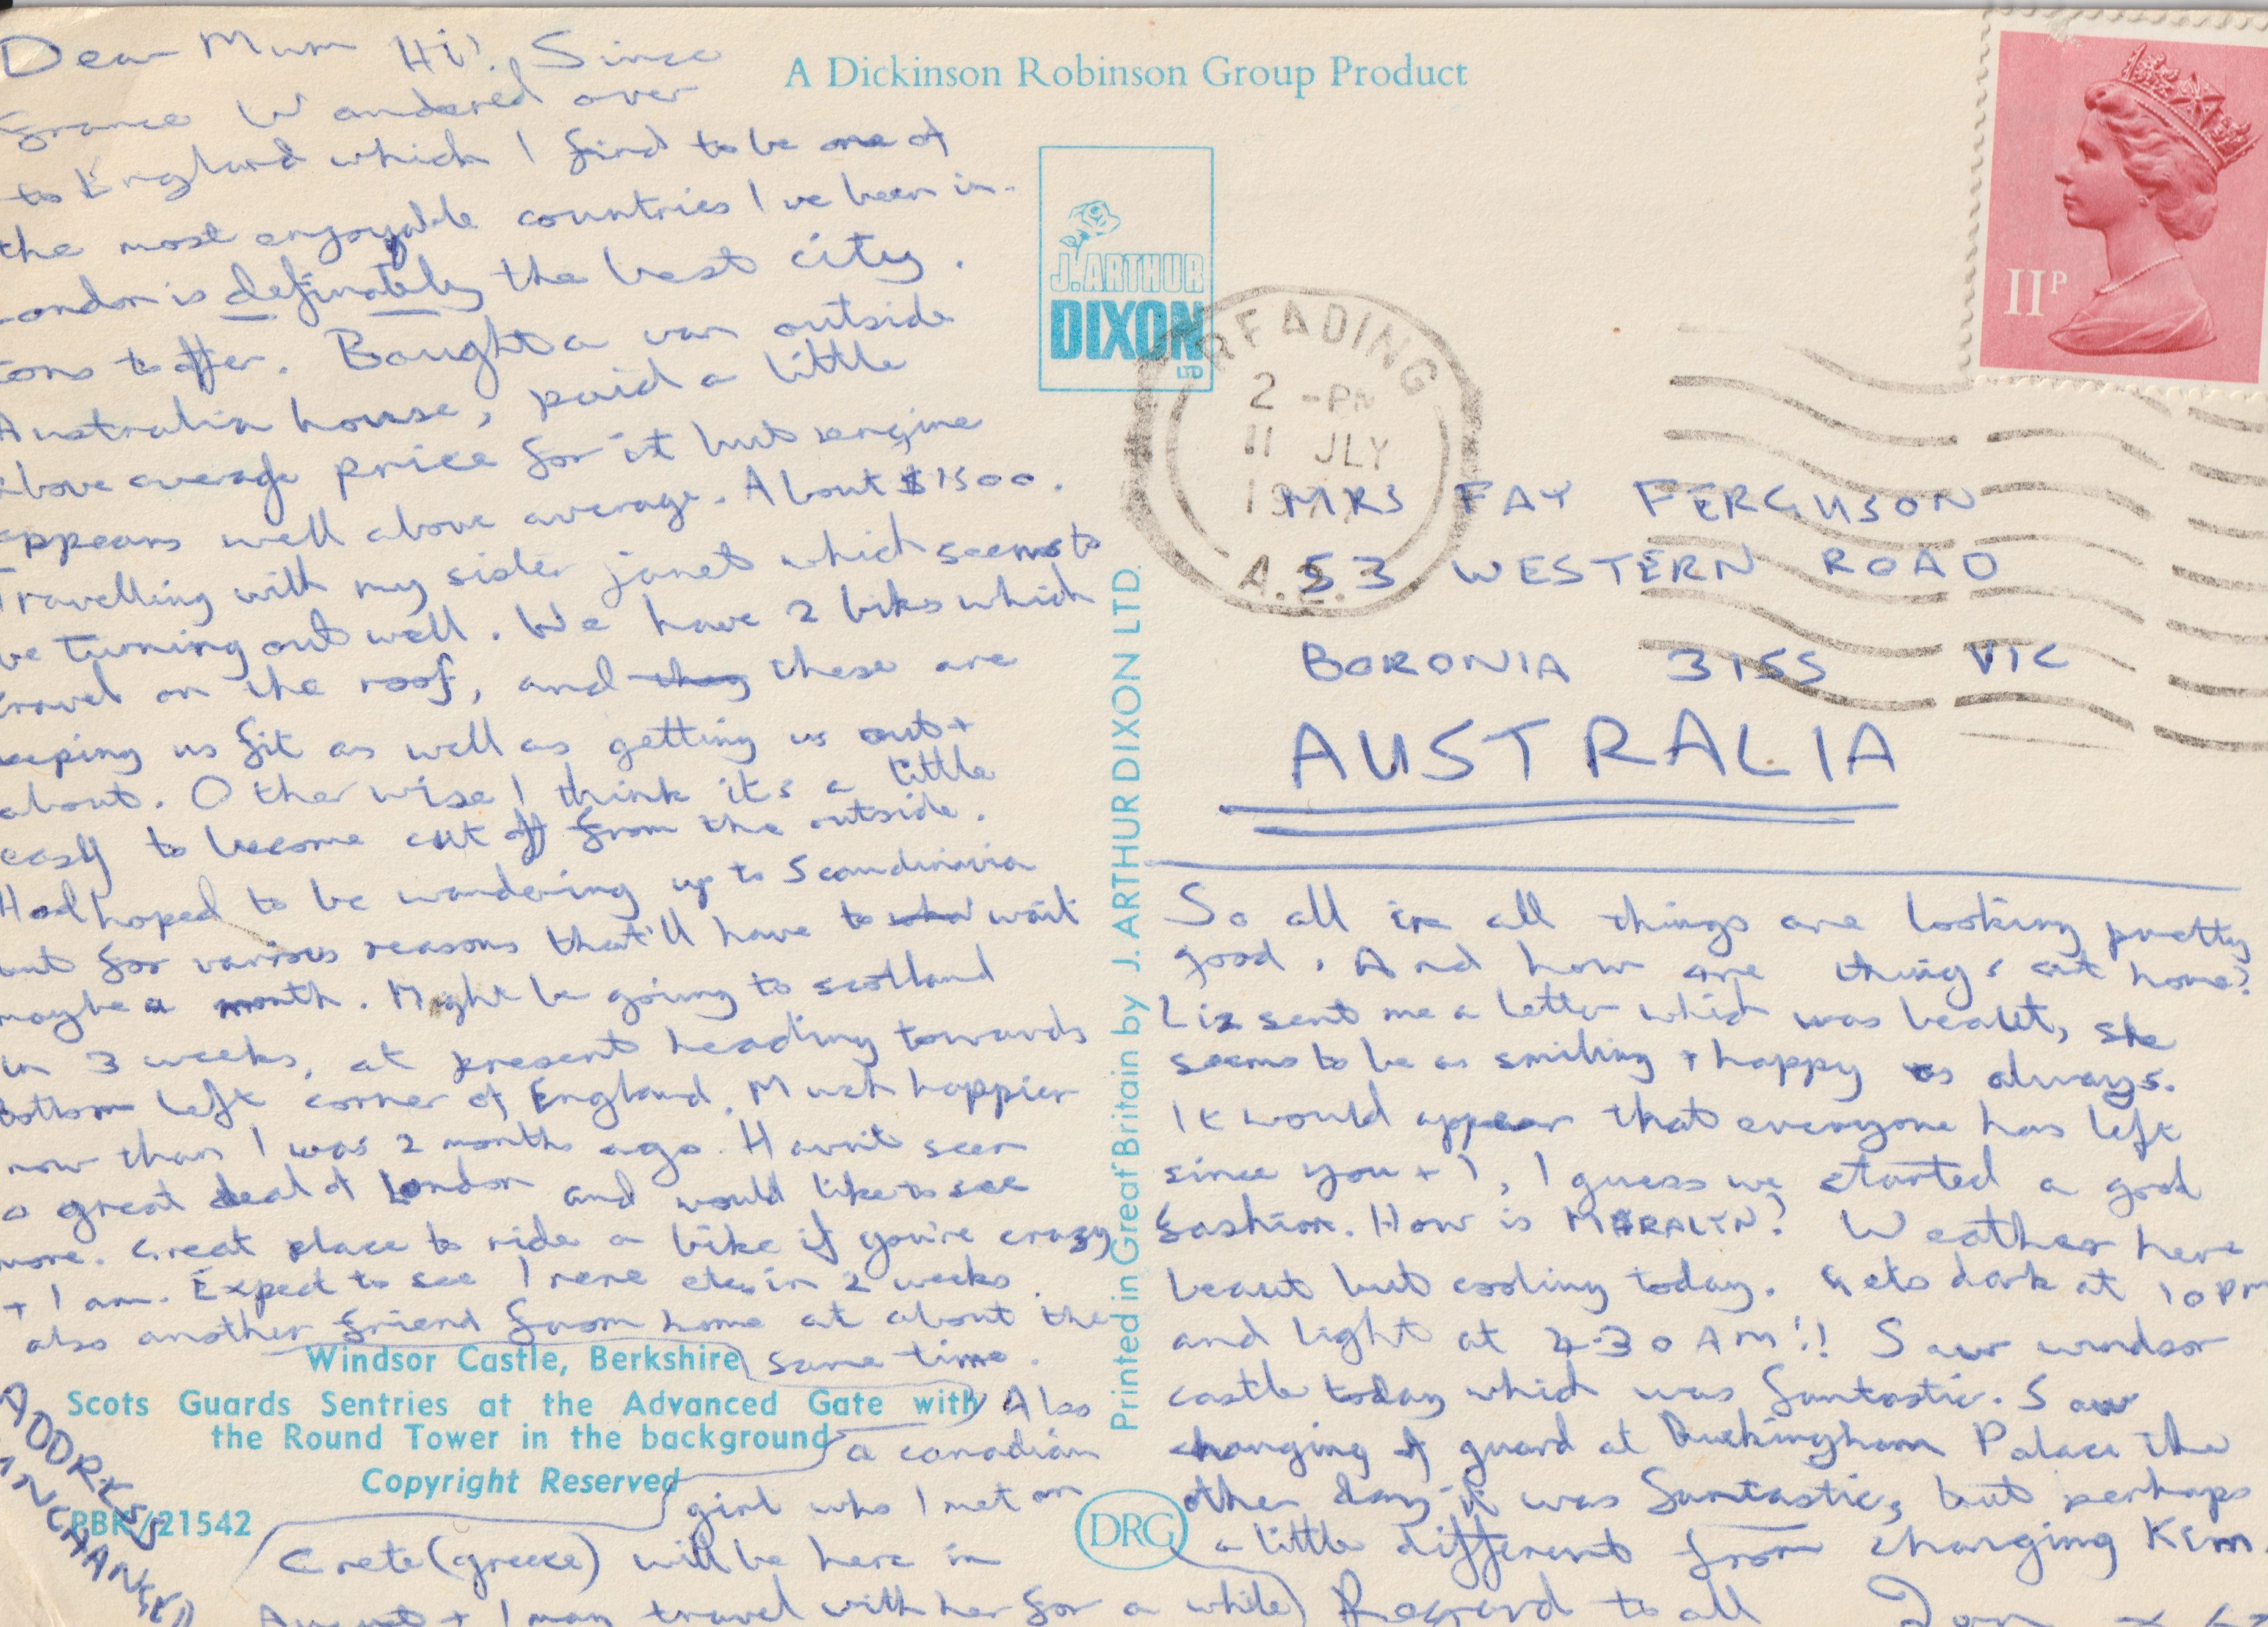 Dear Mum Hi! Since
France Wandered over
to England which I find to be one of
the most enjoyable countries I've been in.
London is definately the best city.
tons to offer. Bought a van outside
Australia house, paid a little
above average price for it but engine
appears well above average. About $1500.
Travelling with my sister janet which seems to
be turning out well. We have 2 biks which
travel on the roof, and they these are
keeping us fit as well as getting us out +
about. Otherwise I think its a little
easy to become cut off from the outside.
Had hoped to be wandering up to Scandinivia
but for various reasons that'll have to wait
maybe a month. Might be going to scotland
in 3 weeks, at present heading towards
bottom left corner of England. Much happier
now than I was 2 months ago. Havn't seen
a great deal of London and would like to see
more. Great place to ride a bike if you're crazy
+ I am. Expect to see Irene etc, in 2 weeks.
also another friend from home at about the
same time.
Also
a canadian
girl who I met on
Crete (greece) will be here in
August + I may travel with her for a while)
ADDRESS
UNCHANGED
Windsor Castle, Berkshire
Scots Guards Sentries at the Advanced Gate with
the Round Tower in the background
Copyright Reserved
PBR/21542
A Dickinson Robinson Group Product
J. ARTHUR
DIXON
LTD
Printed in Great Britain by J. ARTHUR DIXON LTD.
DRG
11P
READING
2 -PM
11 JLY
MRS FAY FERGUSON
53 WESTERN ROAD
BORONIA 3155 VIC
AUSTRALIA
So all in all things are looking pretty
good. And how are things at home?
Liz sent me a letter which was beaut, she
seems to be as smiling + happy as always.
It would appear that everyone has left
since you + I, I guess we started a good
fashion. How is MARALYN? Weather here
beaut but cooling today. Gets dark at 10PM
and light at 4-30 AM!! Saw windsor
castle today which was fantastic. Saw
changing of guard at Buckingham Palace the
other day it was fantastic, but perhaps
a little different from changing Kim.
Regard to all